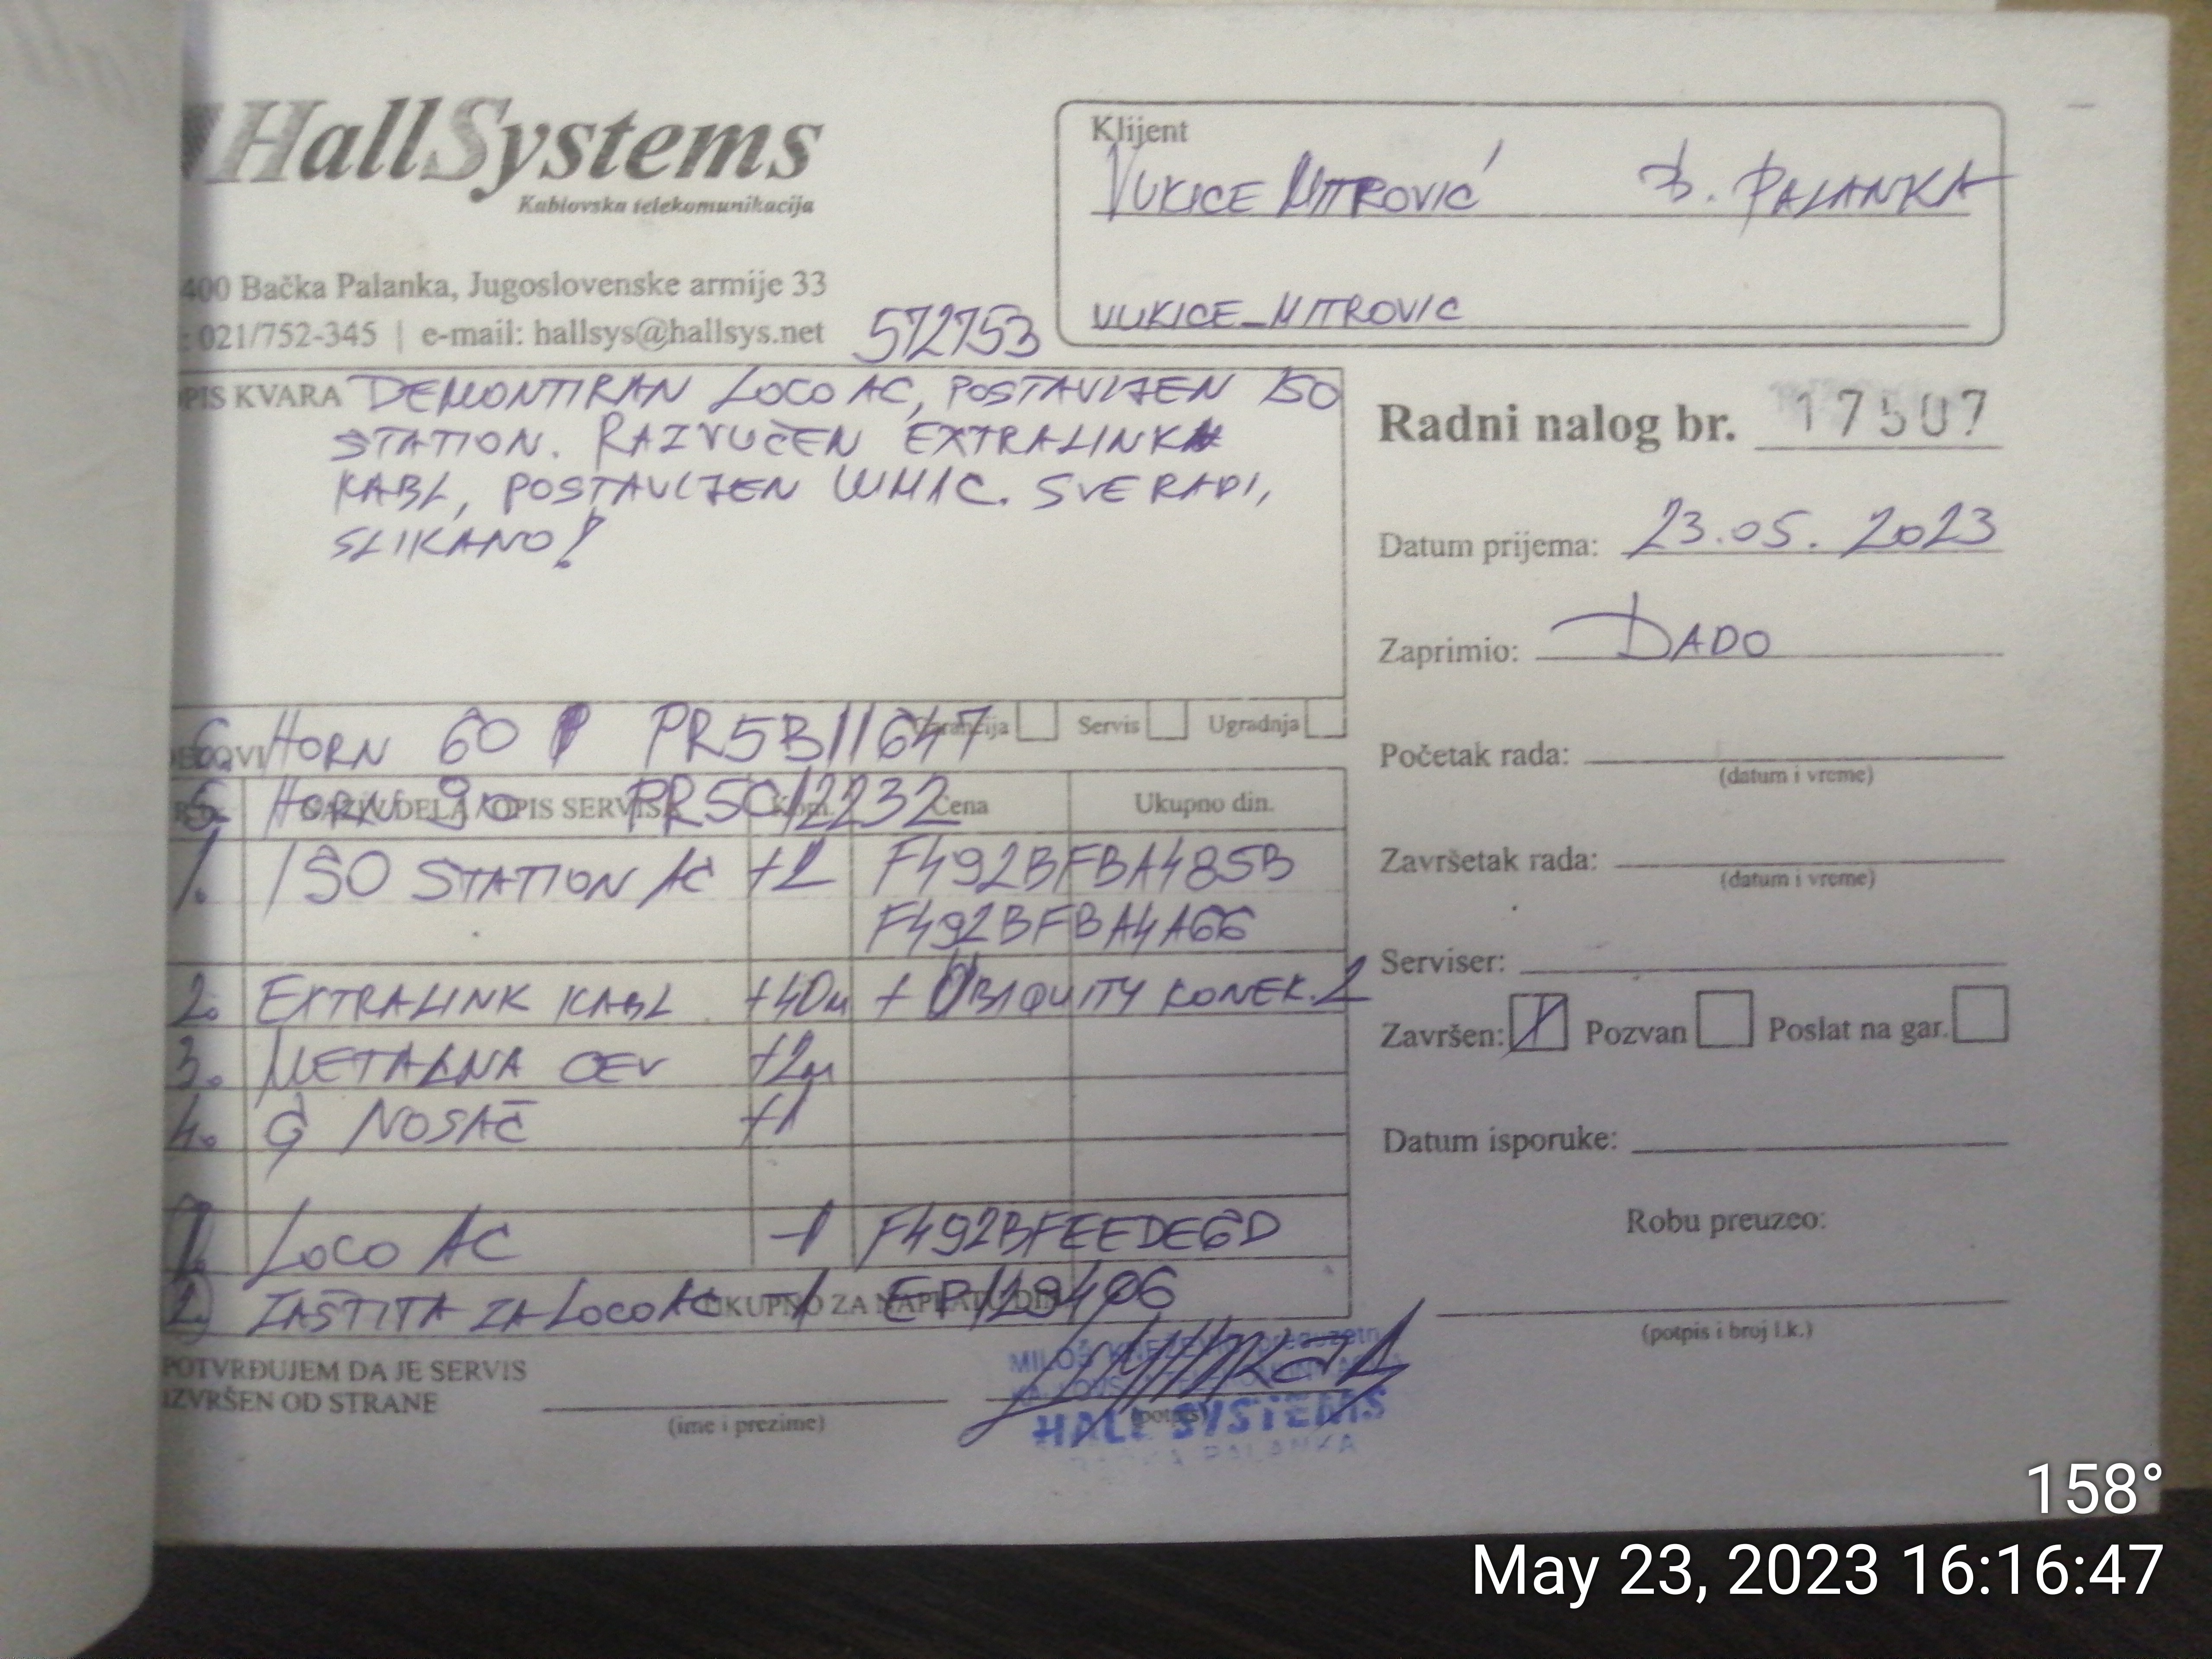 HallSystems
Kablovska telekomunikacija
400 Bačka Palanka, Jugoslovenske armije 33
: 021/752-345 | e-mail: hallsys@hallsys.net
572753
Klijent
VUKICE MITROVIĆ B. PALANKA
VUKICE_MITROVIC
OPIS KVARA DEMONTIRAN LOCO AC, POSTAVLJEN ISO
STATION. RAZVUČEN EXTRALINK
KABL, POSTAVLJEN UMAC. SVE RADI,
SLIKANO!
Radni nalog br. 17507
Datum prijema: 23.05.2023
Zaprimio: DADO
Početak rada:
(datum i vreme)
Završetak rada:
(datum i vreme)
Serviser:
Završen: X Pozvan Poslat na gar.
Datum isporuke:
Robu preuzeo:
(potpis i broj l.k.)
Garancija Servis Ugradnja
6. HORN 60 PR5B11647
5. HORN 90 PR5C12232
NAZIV DELA / OPIS SERVISA Kom. Cena Ukupno din.
1. ISO STATION AC +2 F492BFBA485B
F492BFBA4A66
2. EXTRALINK KABL +40m + UBIQUITY KONEK. 2
3. METALNA CEV +2m
4. G NOSAČ +1
1. LOCO AC -1 F492BFEEDE6D
2. ZAŠTITA ZA LOCO AC -1 EP123406
UKUPNO ZA NAPLATU DIN
POTVRĐUJEM DA JE SERVIS
IZVRŠEN OD STRANE
(ime i prezime)
(potpis)
MILOŠ KNEŽEVIĆ preduzetn
HALL SYSTEMS
BAČKA PALANKA
158°
May 23, 2023 16:16:47